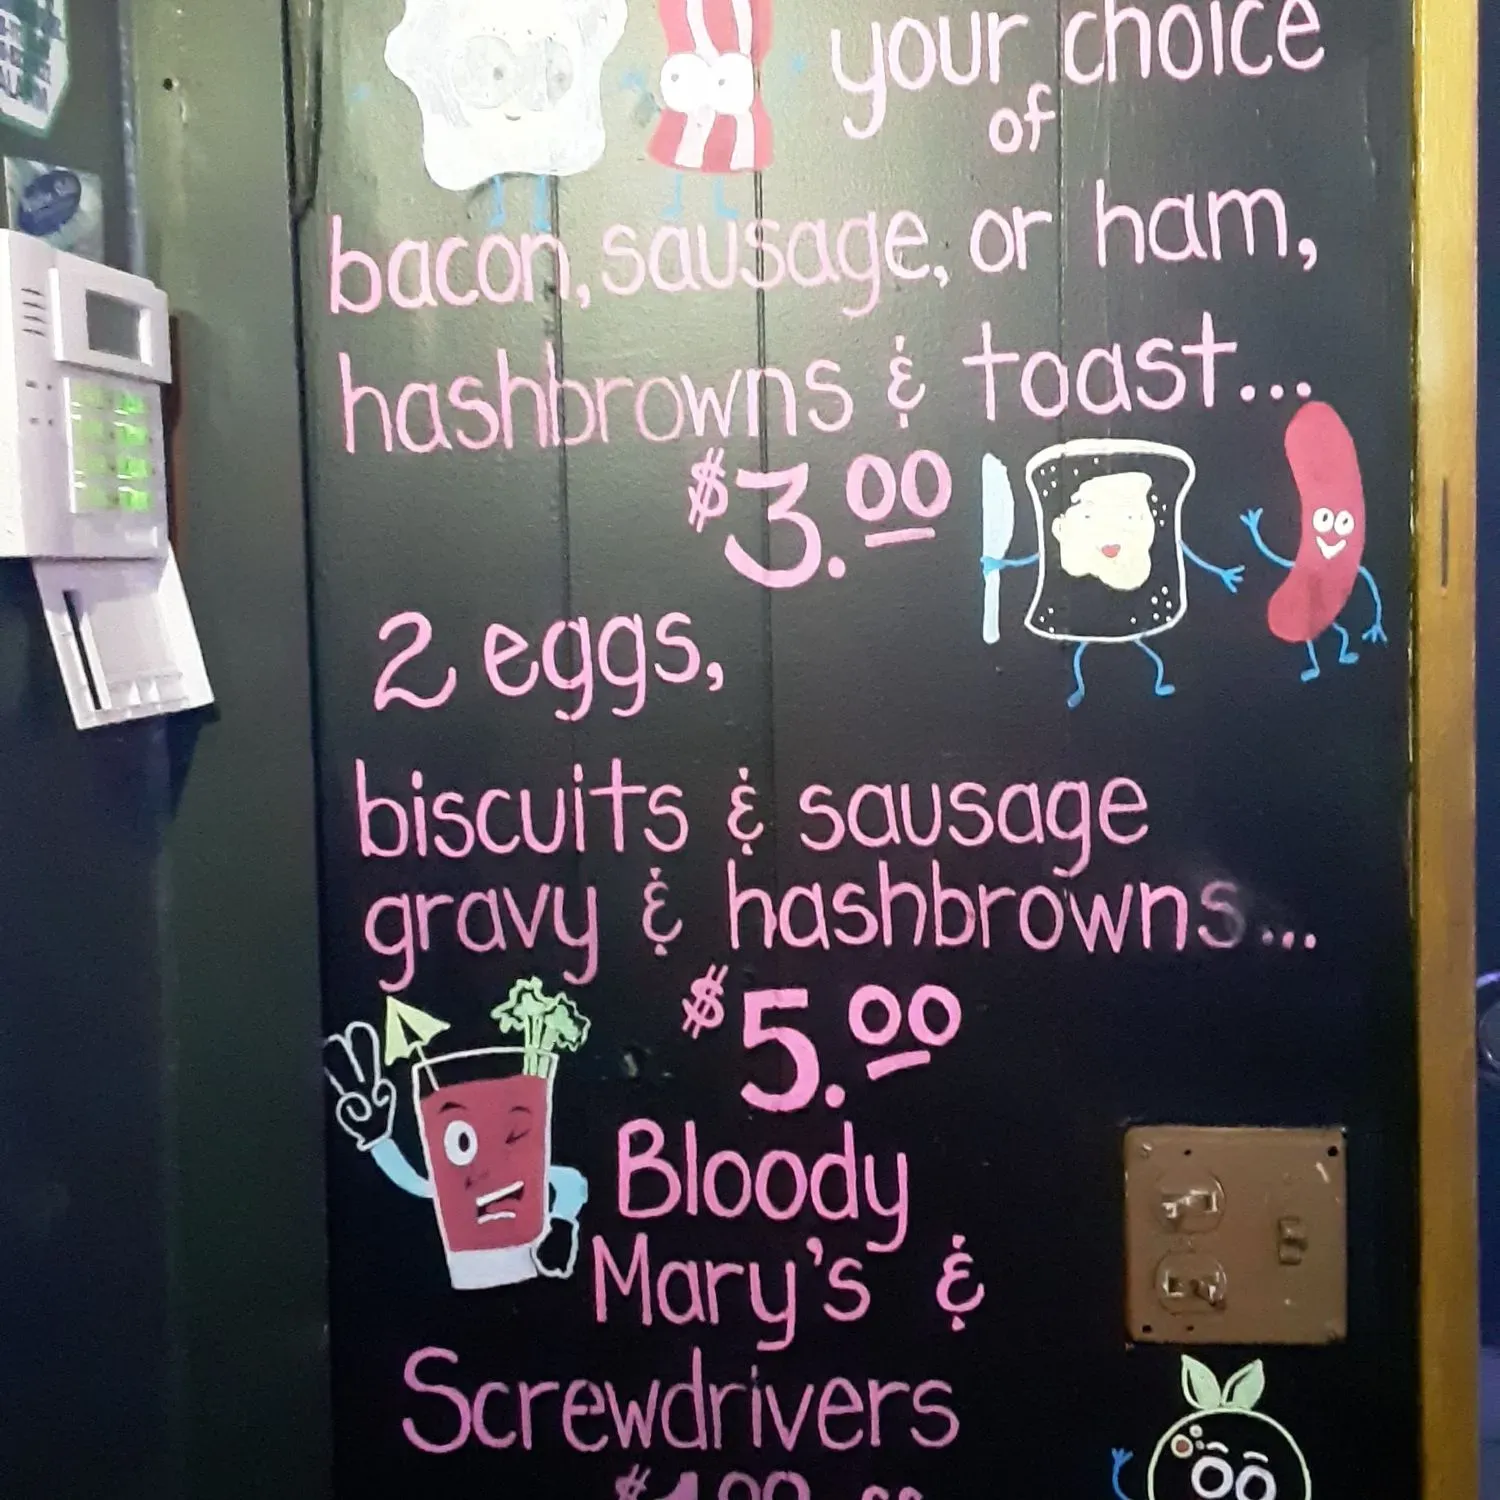 your choice
of
bacon, sausage, or ham,
hashbrowns & toast...
$3.00
2 eggs,
biscuits & sausage
gravy & hashbrowns...
$5.00
Bloody
Mary's &
Screwdrivers